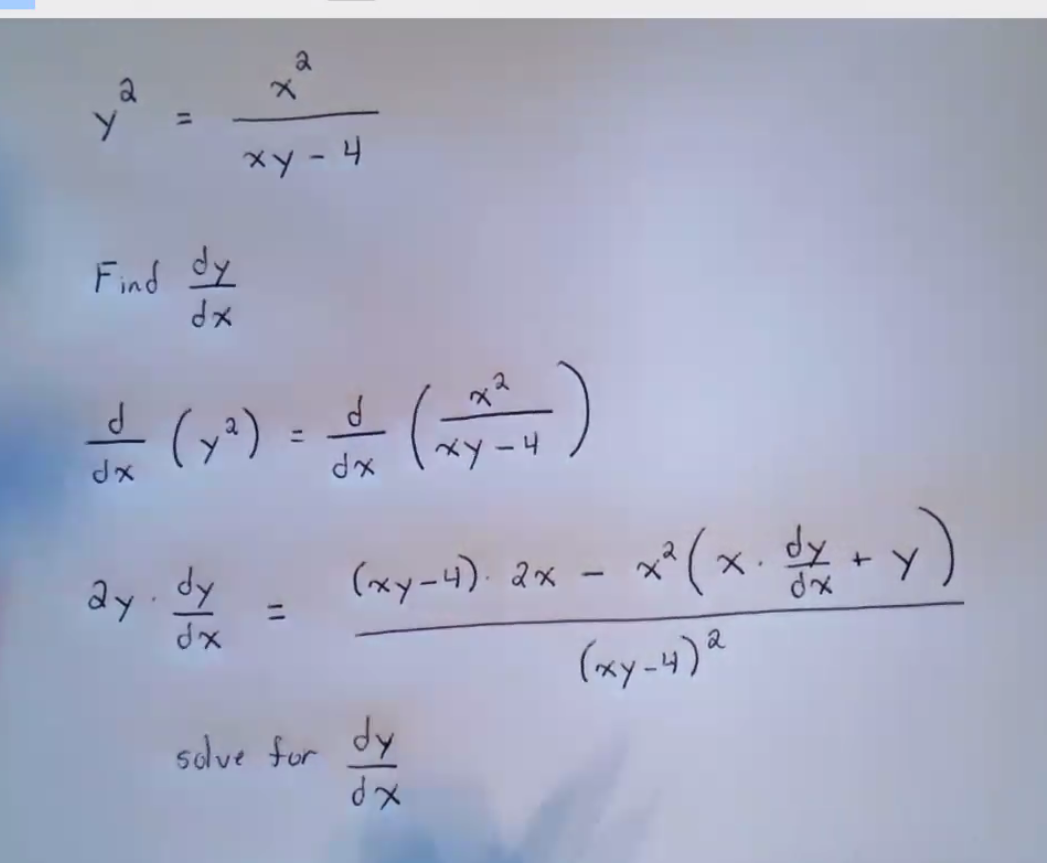 y² = x² / (xy - 4)
Find dy/dx
d/dx (y²) = d/dx (x² / (xy - 4))
2y · dy/dx = ((xy - 4) · 2x - x² (x · dy/dx + y)) / (xy - 4)²
solve for dy/dx